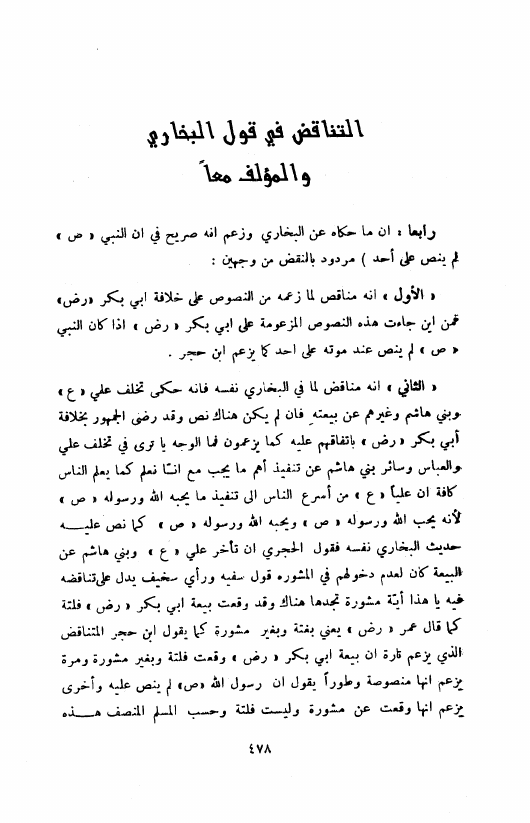 التناقض في قول البخاري
والمؤلف معاً
رابعا : ان ما حكاه عن البخاري وزعم انه صريح في ان النبي « ص »
لم ينص على أحد ) مردود بالنقض من وجهين :
« الأول » انه مناقض لما زعمه من النصوص على خلافة ابي بكر «رض»
فمن اين جاءت هذه النصوص المزعومة على ابي بكر « رض » اذا كان النبي
« ص » لم ينص عند موته على احد كما يزعم ابن حجر .
« الثاني » انه مناقض لما في البخاري نفسه فانه حكى تخلف علي « ع »
وبني هاشم وغيرهم عن بيعته فان لم يكن هناك نص وقد رضى الجمهور بخلافة
أبي بكر « رض » باتفاقهم عليه كما يزعمون فما الوجه يا ترى في تخلف علي
والعباس وسائر بني هاشم عن تنفيذ أهم ما يجب مع انـّا نعلم كما يعلم الناس
كافة ان علياً « ع » من أسرع الناس الى تنفيذ ما يحبه الله ورسوله « ص »
لأنه يحب الله ورسوله « ص » ويحبه الله ورسوله « ص » كما نص عليـــه
حديث البخاري نفسه فقول الحجري ان تأخر علي « ع » وبني هاشم عن
البيعة كان لعدم دخولهم في المشوره قول سفيه ورأي سخيف يدل على تناقضه
فيه يا هذا أيّة مشورة تجدها هناك وقد وقعت بيعة ابي بكر « رض » فلتة
كما قال عمر « رض » يعني بغتة وبغير مشورة كما يقول ابن حجر المتناقض
الذي يزعم تارة ان بيعة ابي بكر « رض » وقعت فلتة وبغير مشورة ومرة
يزعم انها منصوصة وطوراً يقول ان رسول الله «ص» لم ينص عليه وأخرى
يزعم انها وقعت عن مشورة وليست فلتة وحسب المسلم المنصف هـــذه
٤٧٨